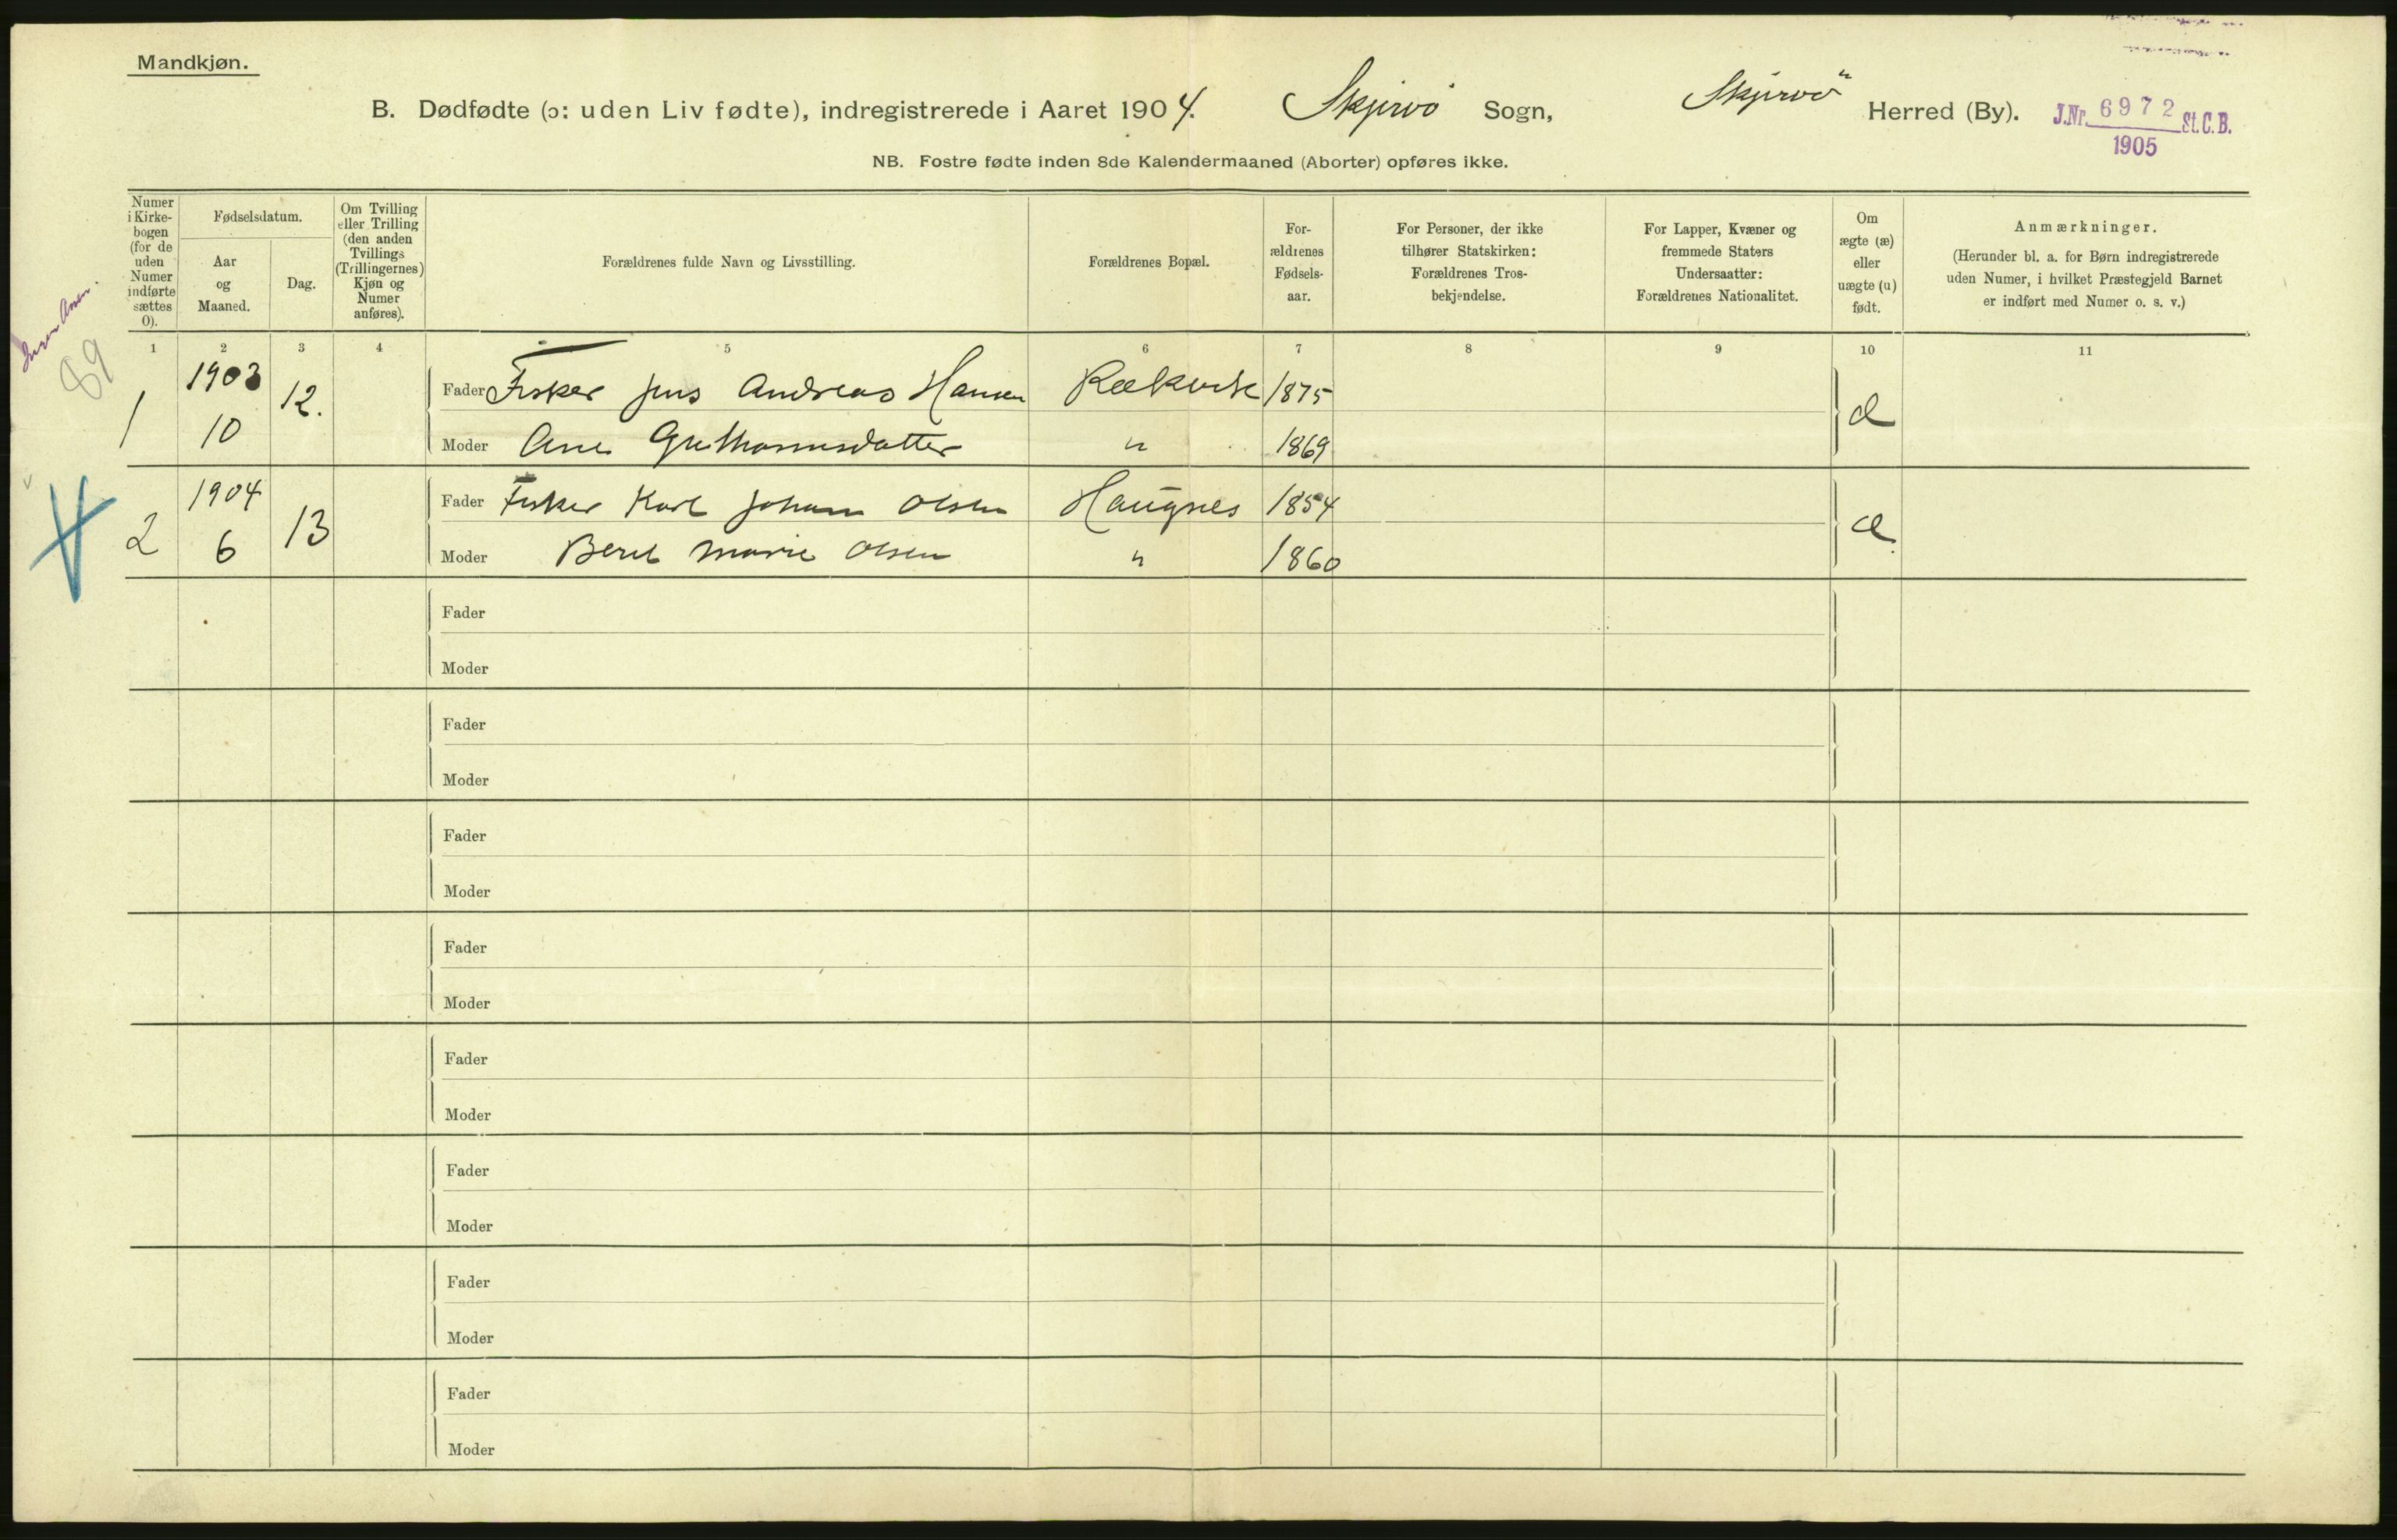 Mandkjøn.
B. Dødfødte (ɔ: uden Liv fødte), indregistrerede i Aaret 1904. Skjervö Sogn, Skjervö Herred (By). J.Nr. 6972 St.C.B.
1905
NB. Fostre fødte inden 8de Kalendermaaned (Aborter) opføres ikke.
Numer
i Kirke-
bogen
(for de
uden
Numer
indførte
sættes
0).
Fødselsdatum.
Aar
og
Maaned.
Dag.
Om Tvilling
eller Trilling
(den anden
Tvillings
(Trillingernes)
Kjøn og
Numer
anføres).
Forældrenes fulde Navn og Livsstilling.
Forældrenes Bopæl.
For-
ældrenes
Fødsels-
aar.
For Personer, der ikke
tilhører Statskirken:
Forældrenes Tros-
bekjendelse.
For Lapper, Kvæner og
fremmede Staters
Undersaatter:
Forældrenes Nationalitet.
Om
ægte (æ)
eller
uægte (u)
født.
Anmærkninger.
(Herunder bl. a. for Børn indregistrerede
uden Numer, i hvilket Præstegjeld Barnet
er indført med Numer o. s. v.)
1 2 3 4 5 6 7 8 9 10 11
89
1 1903 10 12. Fader Fisker Jens Andreas Hansen 1875 æ
Moder Ane " 1869
2 1904 6 13 Fader Fisker Karl Johan Olsen Haugnes 1854 æ
Moder Berit Marie Olsen " 1860
Fader
Moder
Fader
Moder
Fader
Moder
Fader
Moder
Fader
Moder
Fader
Moder
Fader
Moder
Fader
Moder